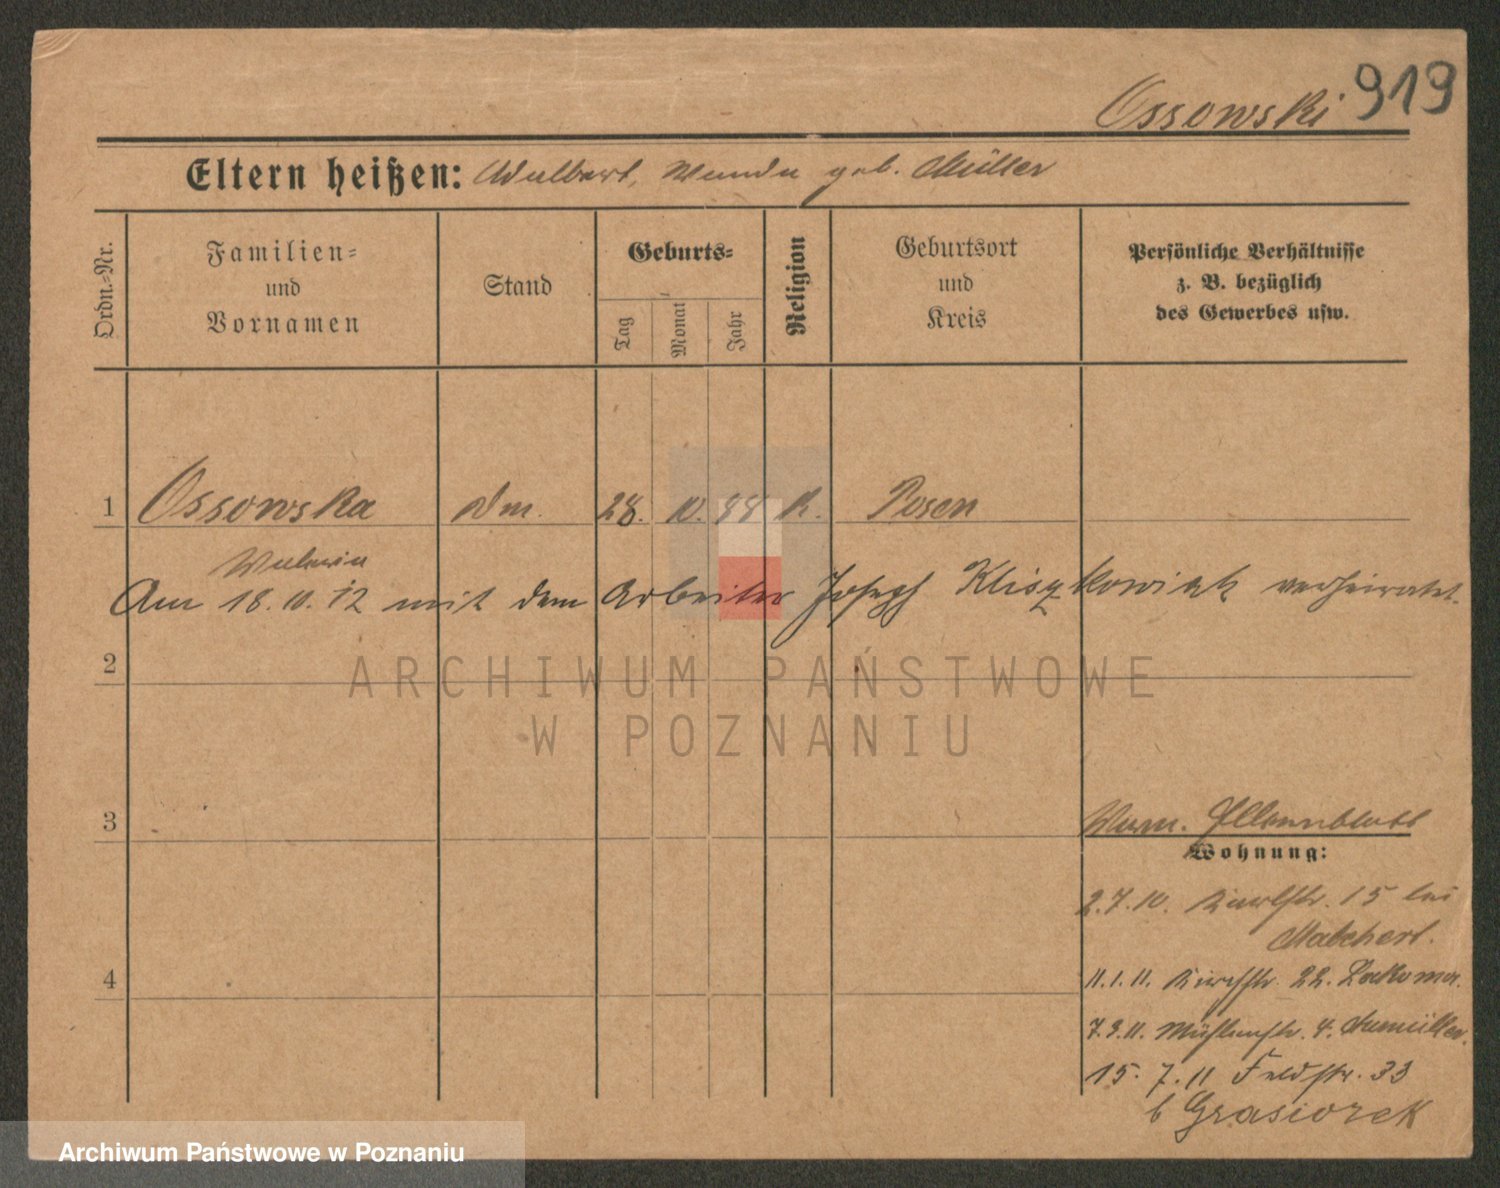 Ossowski 919
Eltern heißen: Adalbert, Wanda geb. Müller
Ordn.-Nr.
Familien-
und
Vornamen
Stand
Geburts-
Tag
Monat
Jahr
Religion
Geburtsort
und
Kreis
Persönliche Verhältnisse
z. B. bezüglich
des Gewerbes usw.
1 Ossowska 28. 10. 88 K. Posen
Am 18.10.12 mit dem Arbeiter Joseph Kliszkowiak verheiratet.
2
ARCHIWUM PAŃSTWOWE
W POZNANIU
3
Elternblatt
Wohnung:
2.7.10. 15 bei
4
11.1.11. Kirchstr. 22.
7.3.11. Mühlenstr. 4.
15.7.11 Feldstr. 33
b Grasiorek
Archiwum Państwowe w Poznaniu